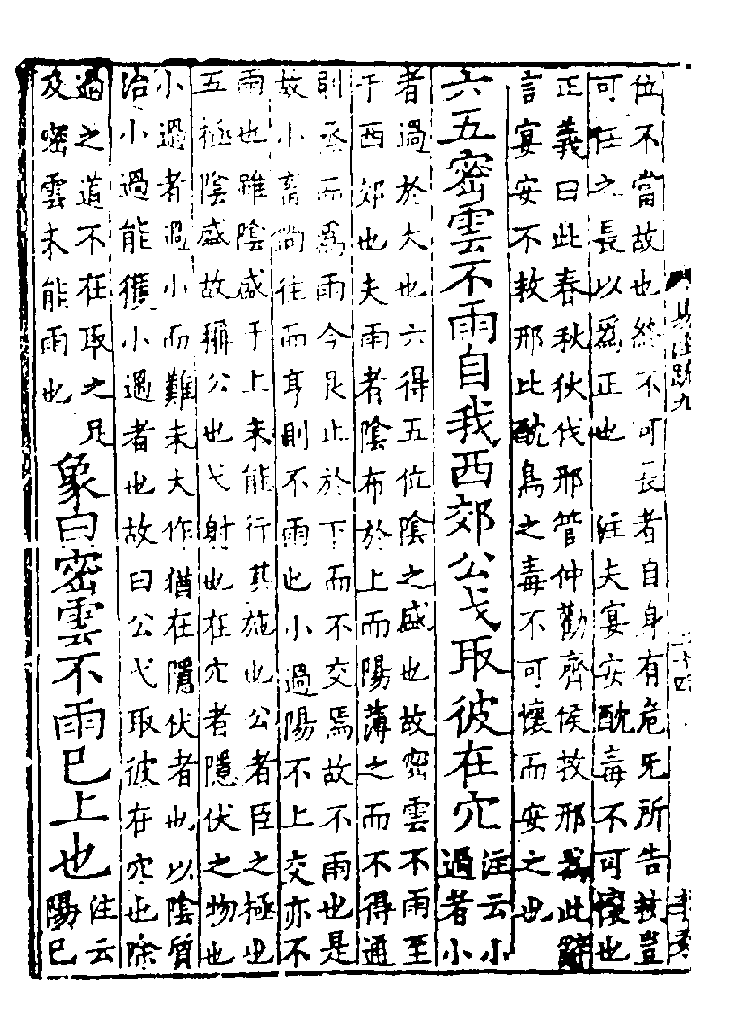 位不當故也終不可長者自身有危无所告救豈
可任之長以爲正也　注夫宴安酖毒不可懷也
正義曰此春秋狄伐邢管仲勸齊侯救邢爲此辭
言宴安不救邢比酖鳥之毒不可懷而安之也
六五密雲不雨自我西郊公弋取彼在穴
注云小
過者小
者過於大也六得五位陰之盛也故密雲不雨至
于西郊也夫雨者陰布於上而陽薄之而不得通
則烝而爲雨今艮止於下而不交焉故不雨也是
故小畜尚往而亨則不雨也小過陽不上交亦不
雨也雖陰盛于上未能行其施也公者臣之極也
五極陰盛故稱公也弋射也在穴者隱伏之物也
小過者過小而難未大作猶在隱伏者也以陰質
治小過能獲小過者也故曰公弋取彼在穴也除
過之道不在取之足
及密雲未能雨也
象曰密雲不雨已上也
注云
陽已
易注疏九
二十四